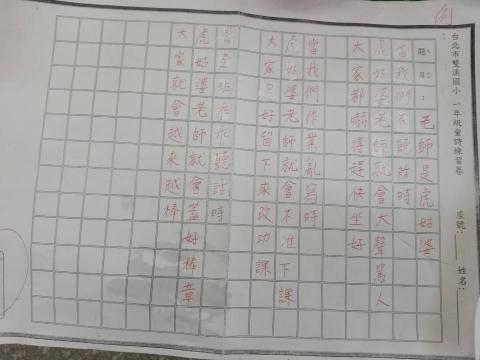 例：
台北市雙溪國小 一年級童詩練習卷 座號： 姓名：
題目：老師是虎姑婆
當我們不聽話時
虎姑婆老師就會大聲罵人
大家都嚇得趕快坐好
當我們作業亂寫時
虎姑婆老師就會不准下課
大家只好留下來改功課
當全班乖乖聽話時
虎姑婆老師就會蓋好棒章
大家就會越來越棒